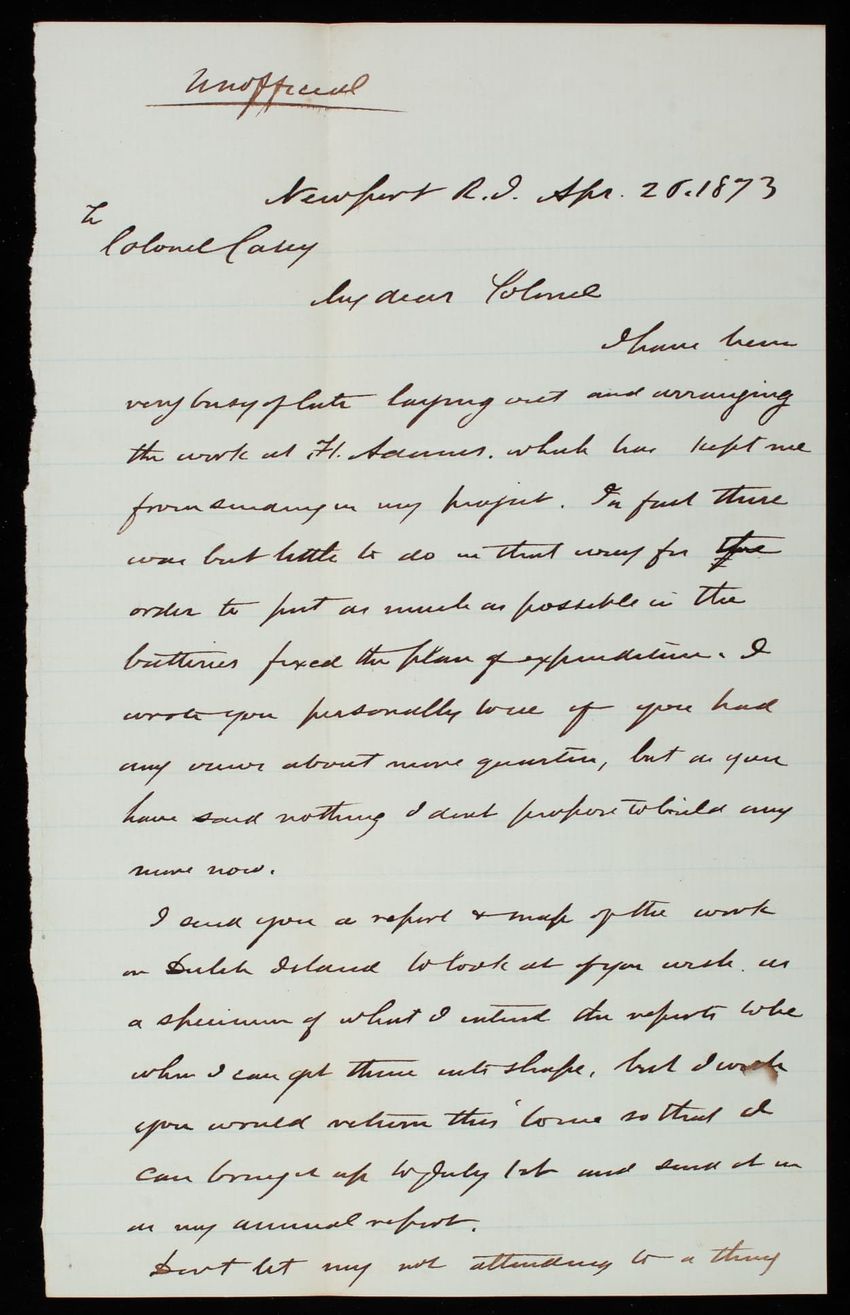 Unofficial
Newport R.I. Apr. 26. 1873
To
Colonel Casey
My dear Colonel
I have been
very busy of late laying out and arranging
the work at Ft. Adams. which has kept me
from sending in my project. In fact there
was but little to do in that way for the
order to put as much as possible in the
batteries fixed the plan of expenditure. I
wrote you personally to see if you had
any views about more quarters, but as you
have said nothing I dont propose to build any
more now.
I send you a report & map of the work
on Dutch Island to look at if you wish. as
a specimen of what I intend the reports to be
when I can get them into shape, but I wish
you would return this to me so that I
can bring it up to July 1st and send it in
as my annual report.
Don't let my not attending to a thing